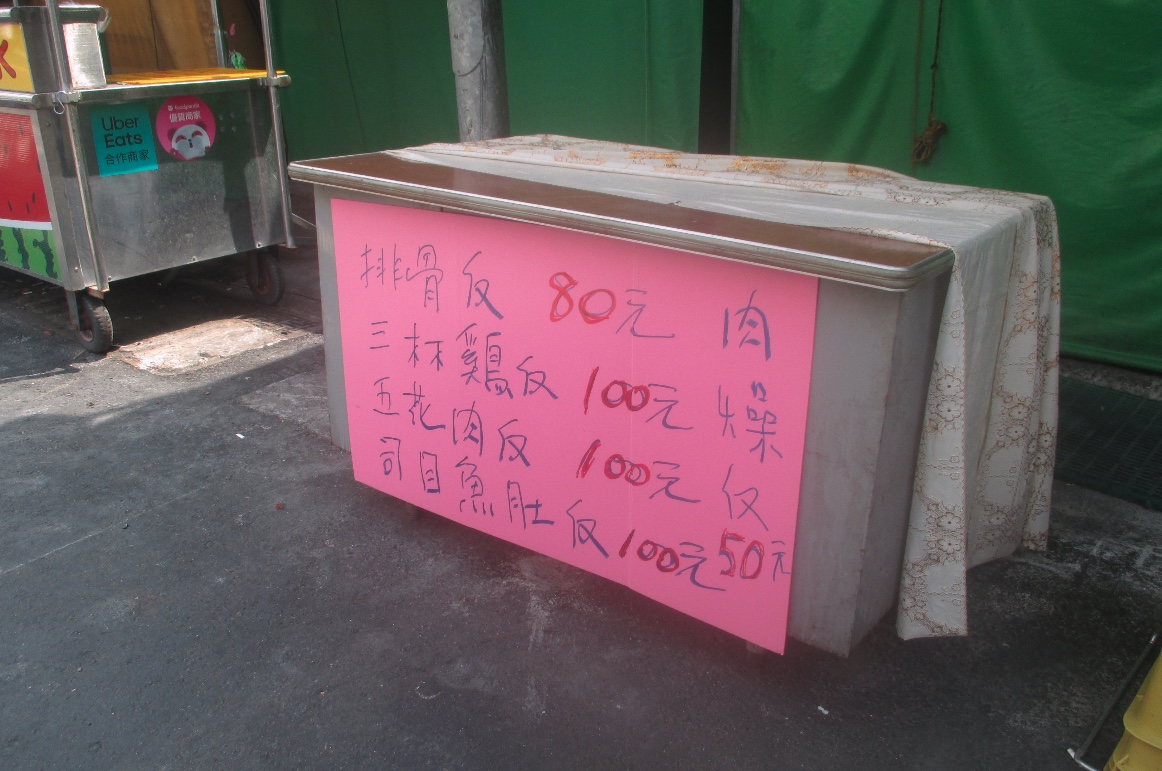 Uber
Eats
合作商家
foodpanda
優質商家
排骨反 80元
三杯鷄反 100元
五花肉反 100元
司目魚肚反 100元
肉燥反 50元